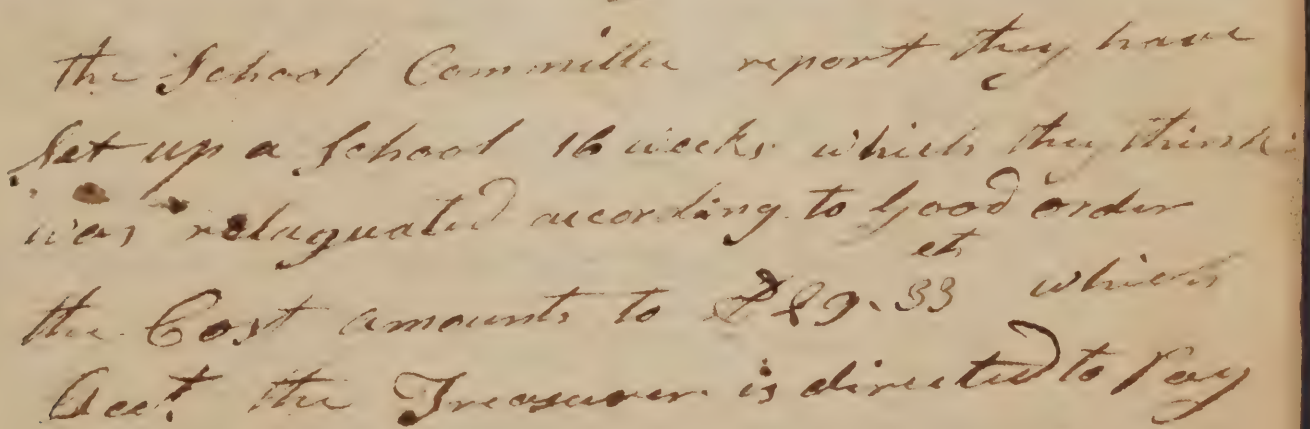 the School Committee report they have
set up a School 16 weeks which they think
was relaguated according to Good order
the Cost amounts to $29.33 cts which
Acct. the Treasurer is directed to Pay